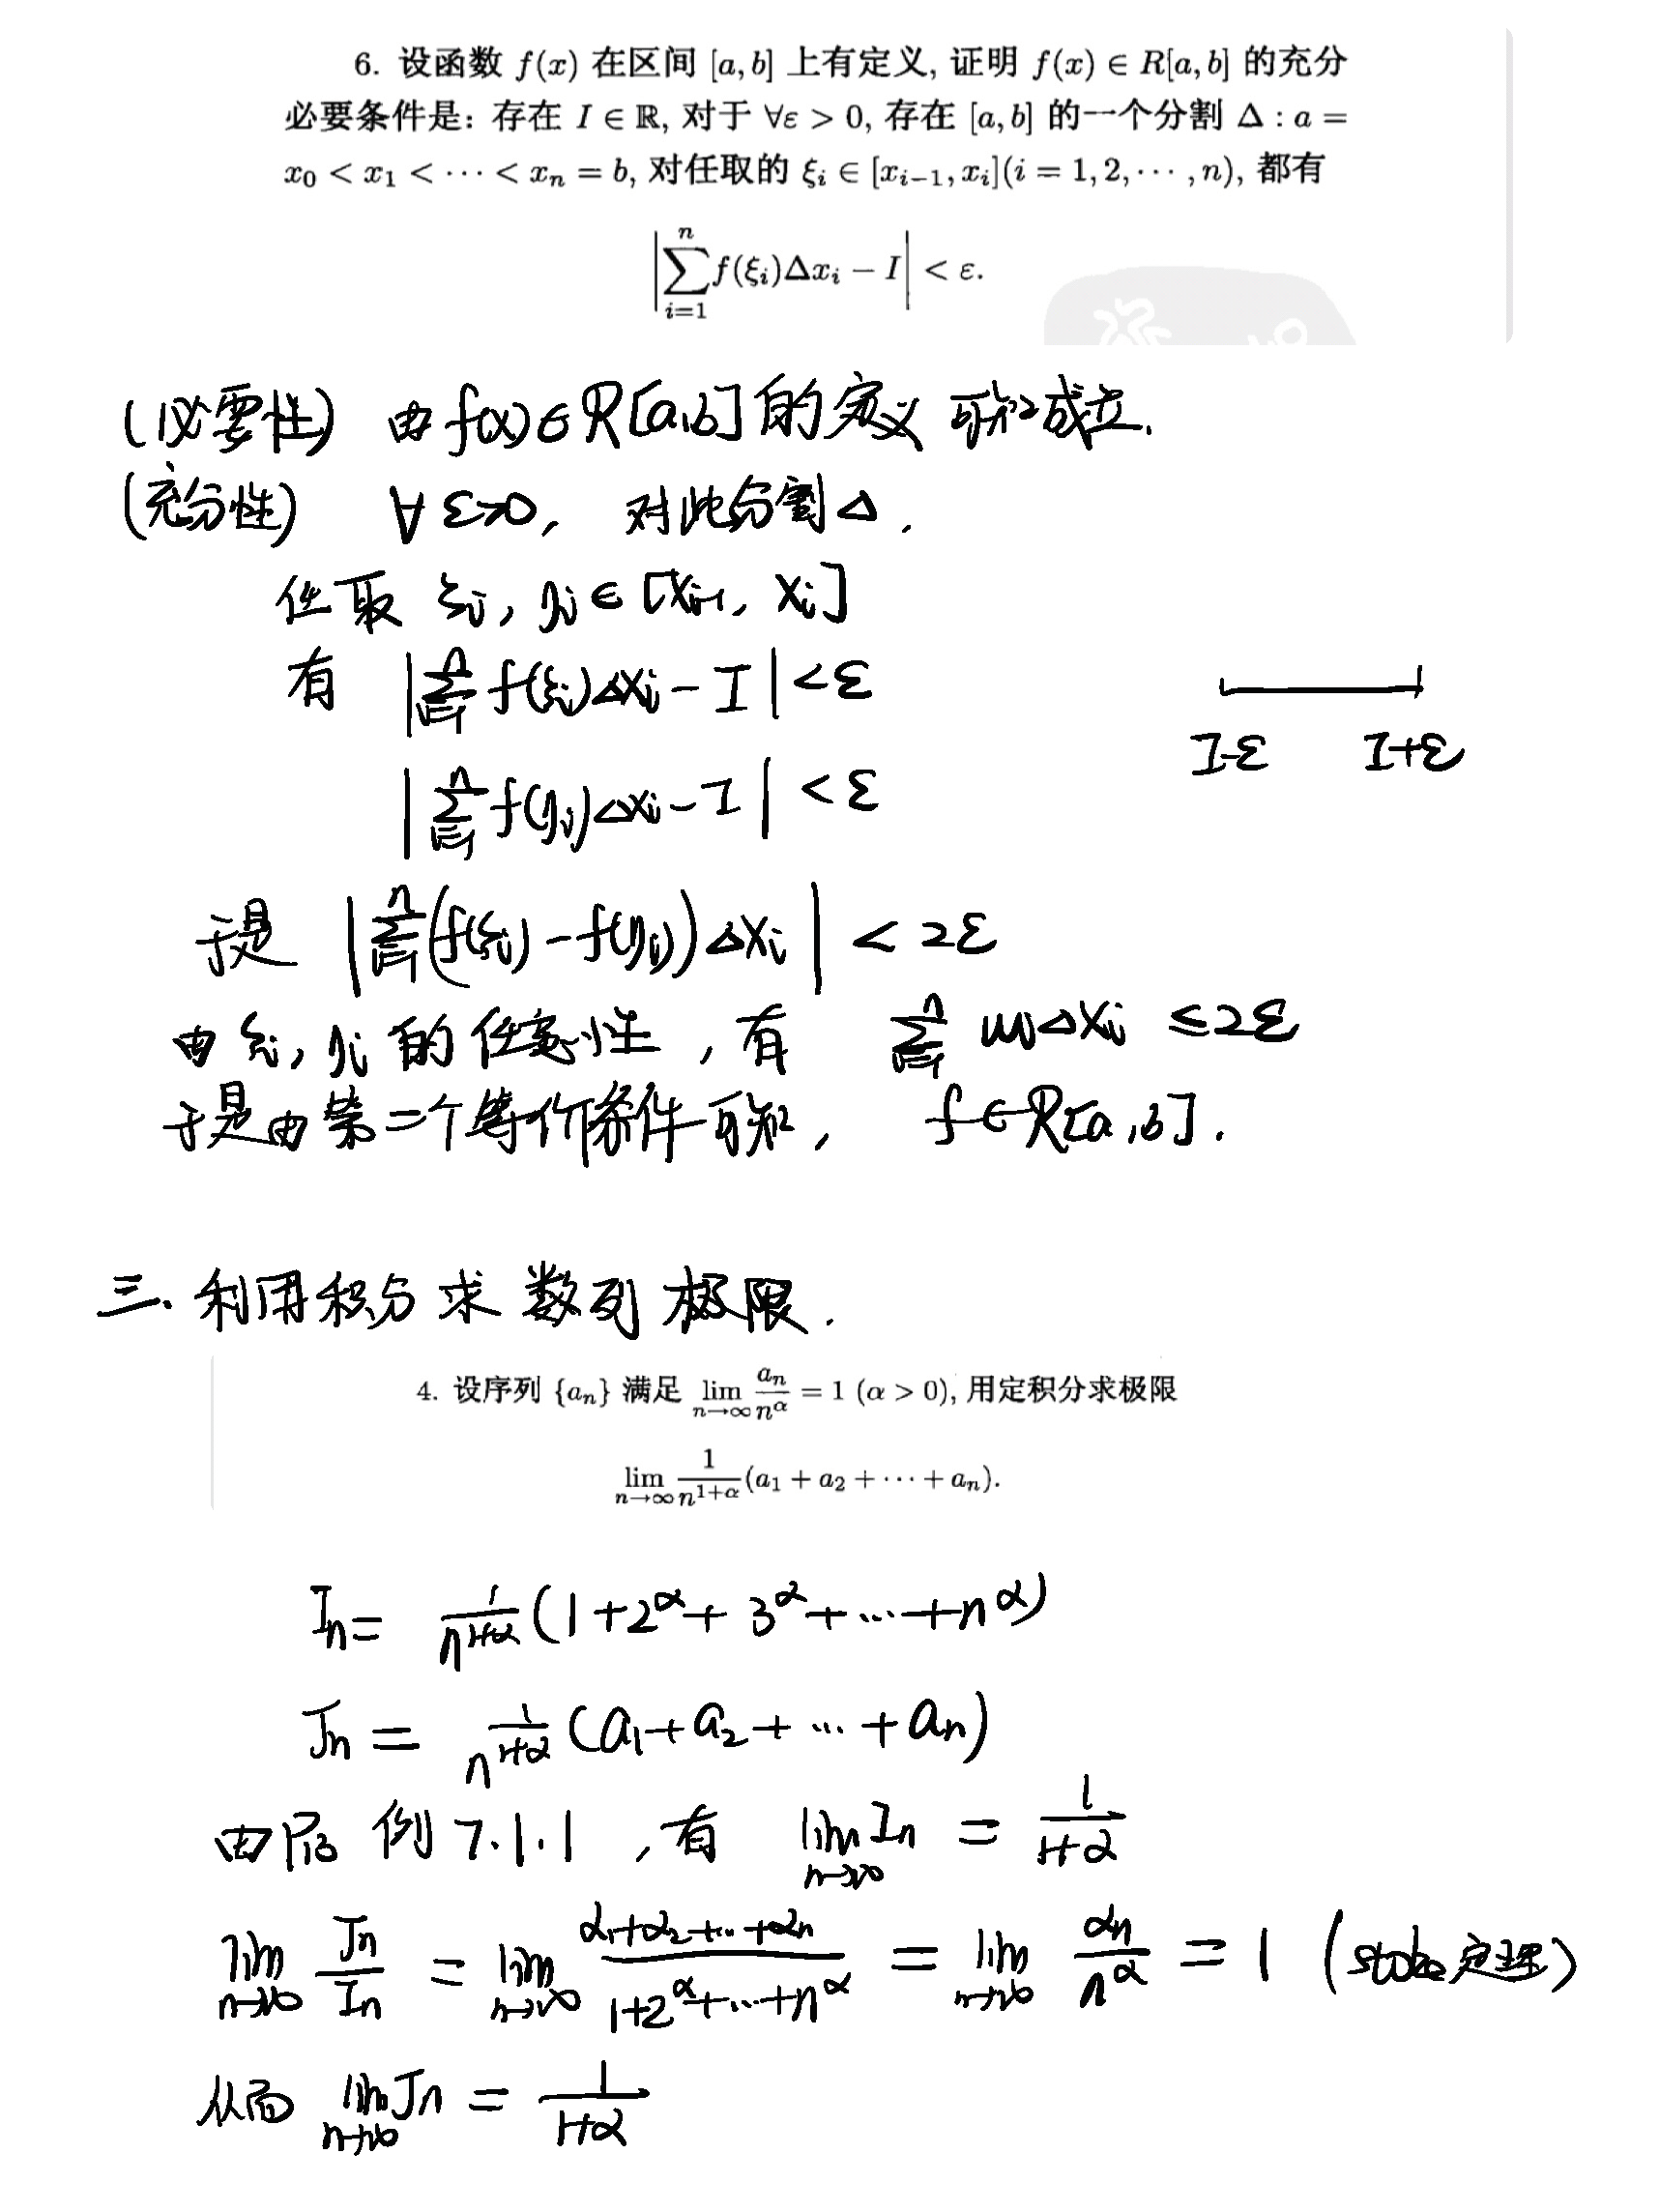 6. 设函数 f(x) 在区间 [a, b] 上有定义, 证明 f(x) ∈ R[a, b] 的充分
必要条件是: 存在 I ∈ ℝ, 对于 ∀ε > 0, 存在 [a, b] 的一个分割 Δ : a =
x₀ < x₁ < ⋯ < xₙ = b, 对任取的 ξᵢ ∈ [xᵢ₋₁, xᵢ](i = 1, 2, ⋯ , n), 都有
|∑ᵢ₌₁ⁿ f(ξᵢ)Δxᵢ − I| < ε.
(必要性) 由 f(x)∈R[a,b] 的定义 可知成立.
(充分性) ∀ ε>0, 对此分割Δ.
任取 ξᵢ, ηᵢ ∈ [xᵢ₋₁, xᵢ]
有 |∑ᵢ₌₁ⁿ f(ξᵢ)Δxᵢ − I| < ε
I-ε I+ε
|∑ᵢ₌₁ⁿ f(ηᵢ)Δxᵢ − I| < ε
于是 |∑ᵢ₌₁ⁿ (f(ξᵢ) − f(ηᵢ))Δxᵢ| < 2ε
由 ξᵢ, ηᵢ 的任意性, 有 ∑ᵢ₌₁ⁿ ωᵢΔxᵢ ≤ 2ε
于是由第二个等价条件可知, f∈R[a,b].
三. 利用积分求数列极限.
4. 设序列 {aₙ} 满足 lim_{n→∞} aₙ/n^α = 1 (α > 0), 用定积分求极限
lim_{n→∞} 1/n^{1+α} (a₁ + a₂ + ⋯ + aₙ).
Iₙ = 1/n^{1+α} (1 + 2^α + 3^α + ⋯ + n^α)
Jₙ = 1/n^{1+α} (a₁ + a₂ + ⋯ + aₙ)
例 7.1.1, 有 lim_{n→∞} Iₙ = 1/(1+α)
lim_{n→∞} Jₙ/Iₙ = lim_{n→∞} (α₁+α₂+⋯+αₙ)/(1+2^α+⋯+n^α) = lim_{n→∞} αₙ/n^α = 1 (定理)
从而 lim_{n→∞} Jₙ = 1/(1+α)